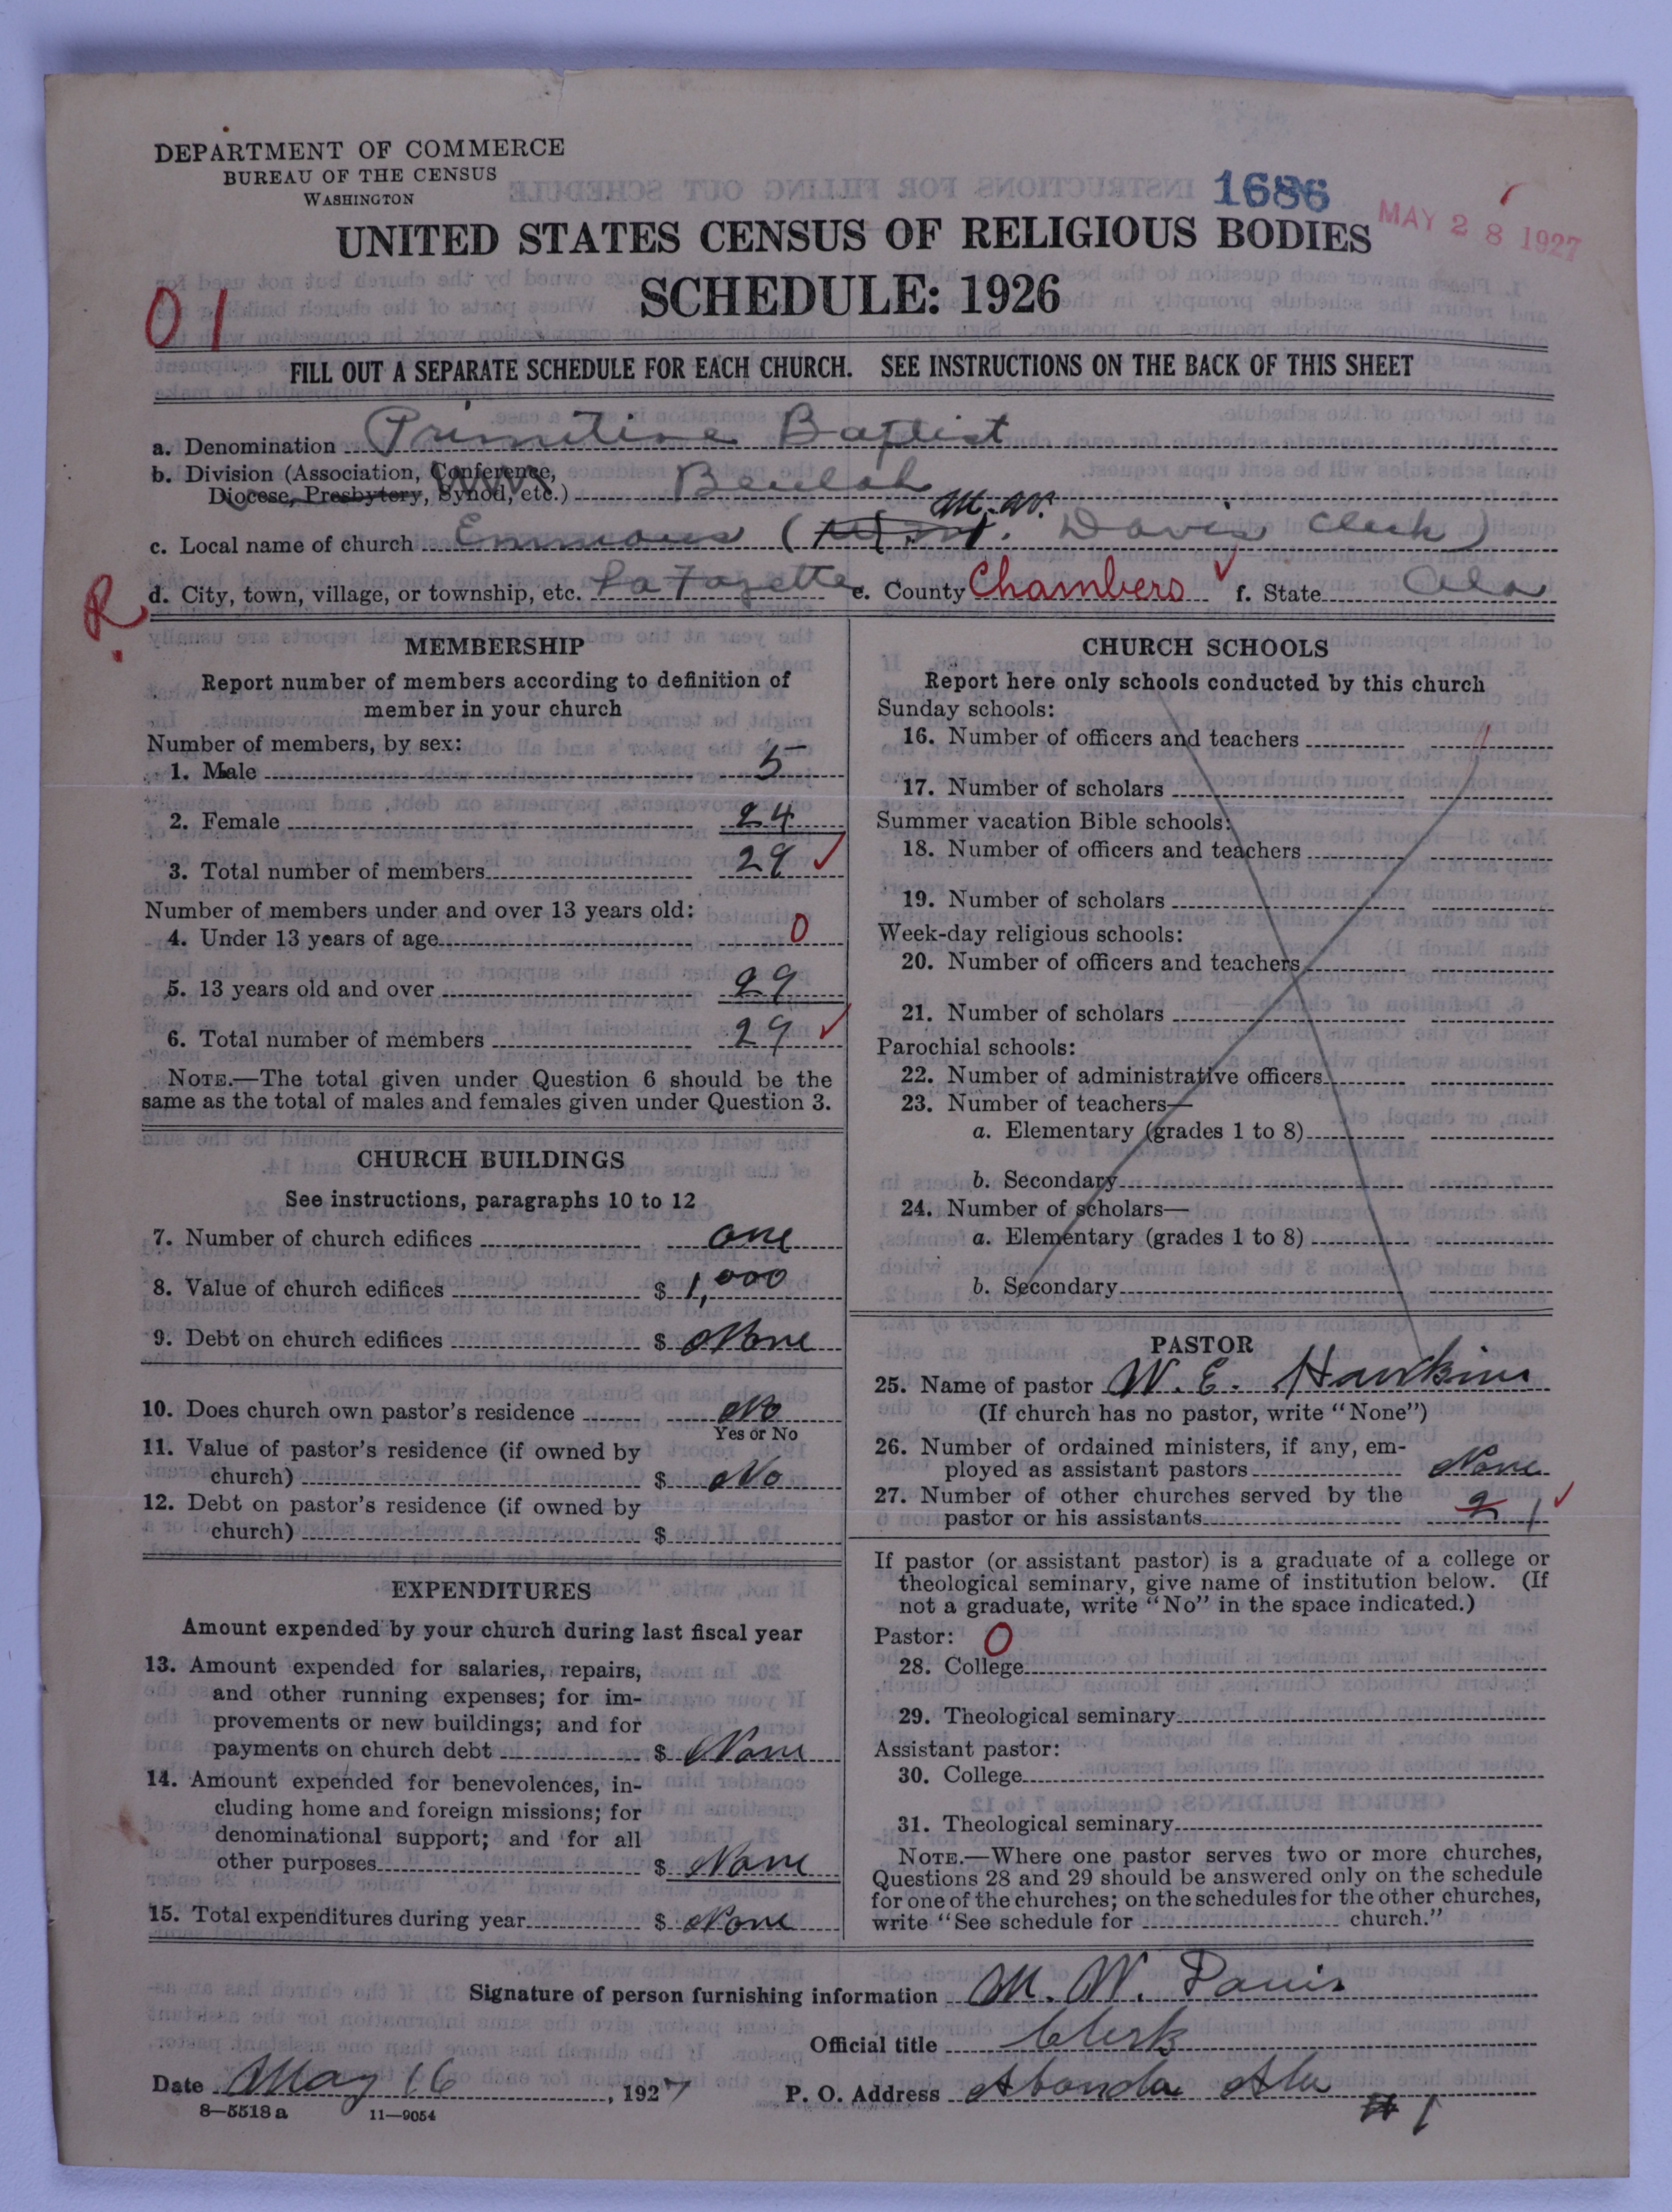 DEPARTMENT OF COMMERCE
BUREAU OF THE CENSUS
WASHINGTON
1686
MAY 28 1927
UNITED STATES CENSUS OF RELIGIOUS BODIES
SCHEDULE: 1926
01
FILL OUT A SEPARATE SCHEDULE FOR EACH CHURCH. SEE INSTRUCTIONS ON THE BACK OF THIS SHEET
a. Denomination Primitive Baptist
b. Division (Association, Conference,
Diocese, Presbytery, Synod, etc.) Beulah
M. W.
c. Local name of church Emmaus ( Davis Clerk )
R
d. City, town, village, or township, etc. LaFayette e. County Chambers f. State Ala
MEMBERSHIP
Report number of members according to definition of
member in your church
Number of members, by sex:
1. Male 5
2. Female 24
3. Total number of members 29
Number of members under and over 13 years old:
4. Under 13 years of age 0
5. 13 years old and over 29
6. Total number of members 29
NOTE.—The total given under Question 6 should be the
same as the total of males and females given under Question 3.
CHURCH BUILDINGS
See instructions, paragraphs 10 to 12
7. Number of church edifices one
8. Value of church edifices $ 1,000
9. Debt on church edifices $ None
10. Does church own pastor's residence No
Yes or No
11. Value of pastor's residence (if owned by
church) $ No
12. Debt on pastor's residence (if owned by
church) $
EXPENDITURES
Amount expended by your church during last fiscal year
13. Amount expended for salaries, repairs,
and other running expenses; for im-
provements or new buildings; and for
payments on church debt $ None
14. Amount expended for benevolences, in-
cluding home and foreign missions; for
denominational support; and for all
other purposes $ None
15. Total expenditures during year $ None
CHURCH SCHOOLS
Report here only schools conducted by this church
Sunday schools:
16. Number of officers and teachers
17. Number of scholars
Summer vacation Bible schools:
18. Number of officers and teachers
19. Number of scholars
Week-day religious schools:
20. Number of officers and teachers
21. Number of scholars
Parochial schools:
22. Number of administrative officers
23. Number of teachers—
a. Elementary (grades 1 to 8)
b. Secondary
24. Number of scholars—
a. Elementary (grades 1 to 8)
b. Secondary
PASTOR
25. Name of pastor W. E. Hawkins
(If church has no pastor, write "None")
26. Number of ordained ministers, if any, em-
ployed as assistant pastors None
27. Number of other churches served by the
pastor or his assistants 2 1
If pastor (or assistant pastor) is a graduate of a college or
theological seminary, give name of institution below. (If
not a graduate, write "No" in the space indicated.)
Pastor: 0
28. College
29. Theological seminary
Assistant pastor:
30. College
31. Theological seminary
NOTE.—Where one pastor serves two or more churches,
Questions 28 and 29 should be answered only on the schedule
for one of the churches; on the schedules for the other churches,
write "See schedule for church."
Signature of person furnishing information M. W. Davis
Official title Clerk
Date May 16, 1927 P. O. Address Abanda Ala
# 1
8—5518a 11—9054